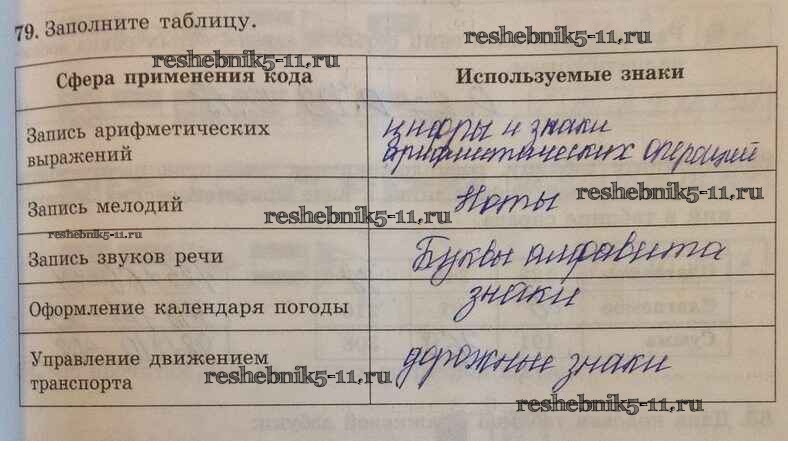 79. Заполните таблицу.
reshebnik5-11.ru
reshebnik5-11.ru
Сфера применения кода
Используемые знаки
Запись арифметических выражений
цифры и знаки
арифметических операций
Запись мелодий
Ноты
reshebnik5-11.ru
reshebnik5-11.ru
reshebnik5-11.ru
Запись звуков речи
Буквы алфавита
Оформление календаря погоды
знаки
Управление движением
транспорта
дорожные знаки
reshebnik5-11.ru
reshebnik5-11.ru